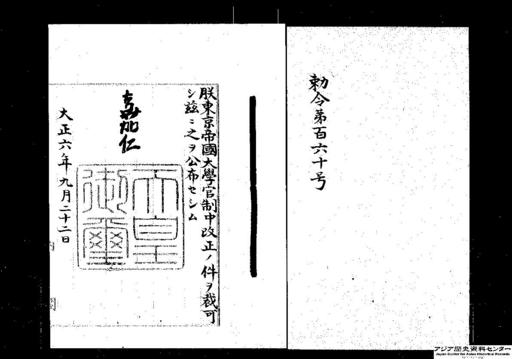 勅令第百六十号
朕東京帝國大學官制中改正ノ件ヲ裁可
シ茲ニ之ヲ公布セシム
嘉仁
天皇御璽
大正六年九月二十二日
アジア歴史資料センター
Japan Center for Asian Historical Records